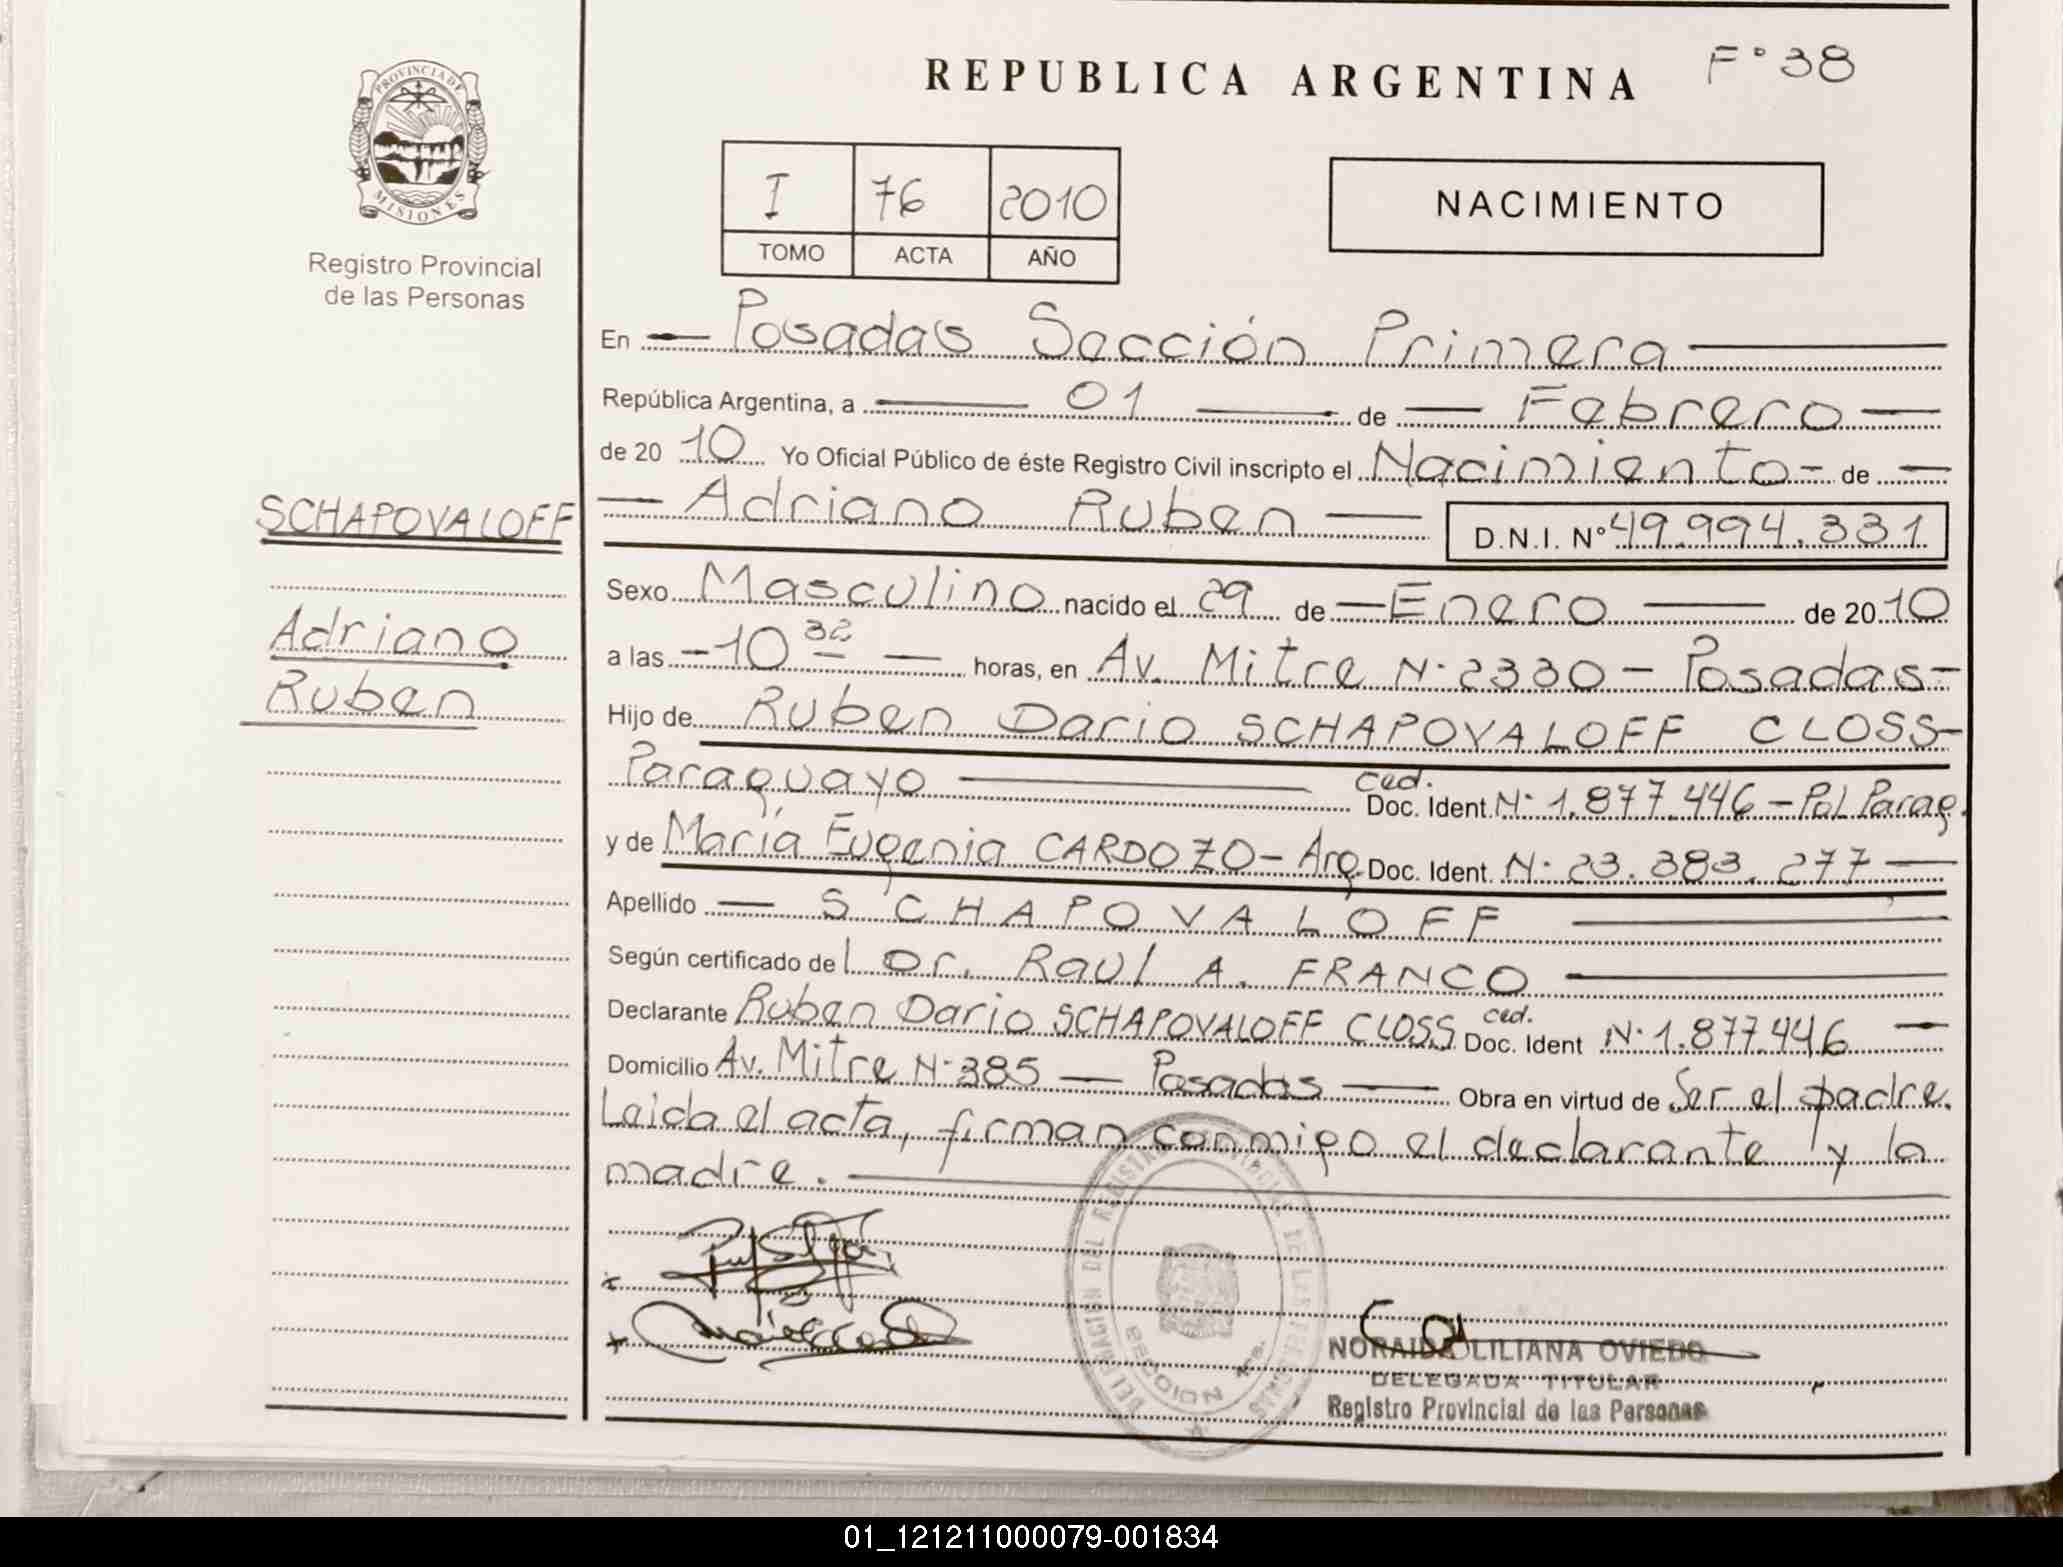 F° 38
REPUBLICA ARGENTINA
PROVINCIA DE
MISIONES
Registro Provincial
de las Personas
I 76 2010
TOMO ACTA AÑO
NACIMIENTO
En — Posadas Sección Primera —
República Argentina, a — 01 — de — Febrero —
de 20 10 Yo Oficial Público de éste Registro Civil inscripto el Nacimiento - de —
SCHAPOVALOFF
— Adriano Ruben — D.N.I. Nº 49.994.331
Sexo Masculino nacido el 29 de — Enero — de 20 10
Adriano
a las - 10 32 — horas, en Av. Mitre N· 2330 - Posadas -
Ruben
Hijo de Ruben Dario SCHAPOVALOFF CLOSS -
Paraguayo — Ced. Doc. Ident. N· 1.877.446 - Pol Parag.
y de María Eugenia CARDOZO - Arg. Doc. Ident. N· 23.383.277 —
Apellido — SCHAPOVALOFF —
Según certificado del Dr. Raul A. FRANCO —
Declarante Ruben Dario SCHAPOVALOFF CLOSS ced. Doc. Ident N· 1.877.446 —
Domicilio Av. Mitre N· 385 — Posadas — Obra en virtud de Ser el padre.
Leida el acta, firman conmigo el declarante y la
madre. —
DELEGACION DEL REGISTRO PROVINCIAL DE LAS PERSONAS
SECCION 1ra.
NORAIDA LILIANA OVIEDO
DELEGADA TITULAR
Registro Provincial de las Personas
01_121211000079-001834